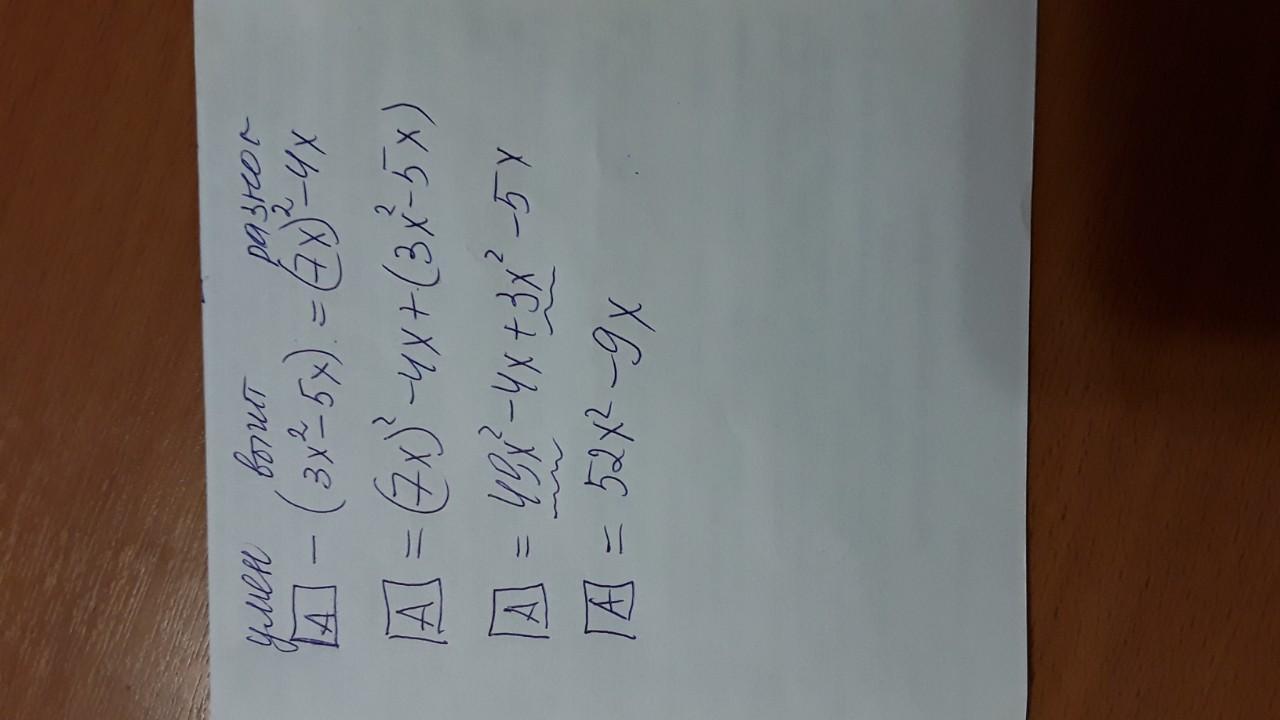 умен выт разност
А - (3x²-5x) = (7x)²-4x
А = (7x)²-4x+(3x²-5x)
А = 49x²-4x+3x²-5x
А = 52x²-9x